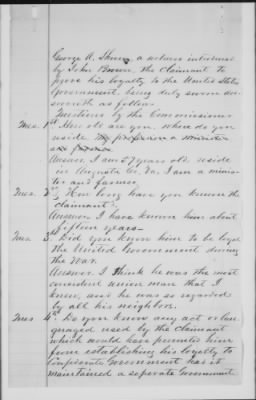 George R. Shrum, a witness introduced
by John Brower, the claimant to
prove his loyalty to the United States
Government, being duly sworn an-
swereth as follows.
Questions by the Commissioner
Ques. 1st How old are you, where do you
reside
Answer. I am 27 years old, reside
in Augusta Co. Va. I am a minis-
ter and farmer,
Ques. 2d, How long have you known the
claimant?
Answer. I have known him about
fifteen years—
Ques. 3d Did you know him to be loyal
the United Government during
the War.
Answer. I think he was the most
consistent union man that I
knew, and he was so regarded
by all his neighbors.
Ques. 4th Do you know any act or lan-
guaged used by the claimant
which would have prevented him
from establishing his loyalty to
Confederate Government had it
maintained a seperate Government